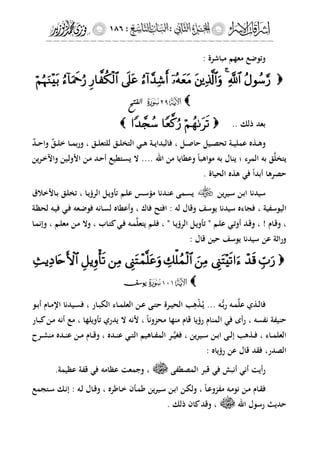 إشراقات الإسراء الجزء الثاني : الباب التاسع : ١٨٦
وتوضع معهم مباشرة :
﴿ رَّسُولُ ٱللَّهِ ۚ وَٱلَّذِينَ مَعَهُۥٓ أَشِدَّآءُ عَلَى ٱلْكُفَّارِ رُحَمَآءُ بَيْنَهُمْ
٢٩ سورة الفتح
بعد ذلك .. ﴿ تَرَىٰهُمْ رُكَّعًا سُجَّدًا ﴾
وهذه عملية تحصيل حاصل ، فالبداية هي التخلق للتعلق ، وربما خلق واحد
يتخلَّق به المرء ؛ ينال به مواهباً وعطايا من الله .... لا يستطيع أحد من الأولين والآخرين
حصرها أبداً في هذه الحياة .
سيدنا ابن سيرين يسمى عندنا مؤسس علم تأويل الرؤيا ، تخلق بالأخلاق
اليوسفية ، فجاءه سيدنا يوسف وقال له : افتح فاك ، وأعطاه لسانه فوضعه في فيه لحظة
، وقام ! ، وقد أوتي علم " تأويل الرؤيا " ، فلم يتعلَّمه في كتاب ، ولا من معلم ، وإنما
وراثة عن سيدنا يوسف حين قال :
﴿ رَبِّ قَدْ ءَاتَيْتَنِى مِنَ ٱلْمُلْكِ وَعَلَّمْتَنِى مِن تَأْوِيلِ ٱلْأَحَادِيثِ
١٠١ سورة يوسف
فالذي علَّمه ربُّه ... يُذْهِب الحيرة حتى عن العلماء الكبار ، فسيدنا الإمام أبو
حنيفة نفسه ، رأى في المنام رؤيا قام منها محزوناً ، لأنه لا يدري تأويلها ، مع أنه من كبار
العلماء ، فذهب إلى ابن سيرين ، فغيَّر المفاهيم التي عنده ، وقام من عنده منشرح
الصدر، فقد قال عن رؤياه :
رأيت أني أنبش في قبر المصطفى ، وجمعت عظامه في قفة عظيمة.
فقام من نومه مفزوعاً ، ولكن ابن سيرين طمأن خاطره ، وقال له : إنك ستجمع
حديث رسول الله ، وقد كان ذلك .